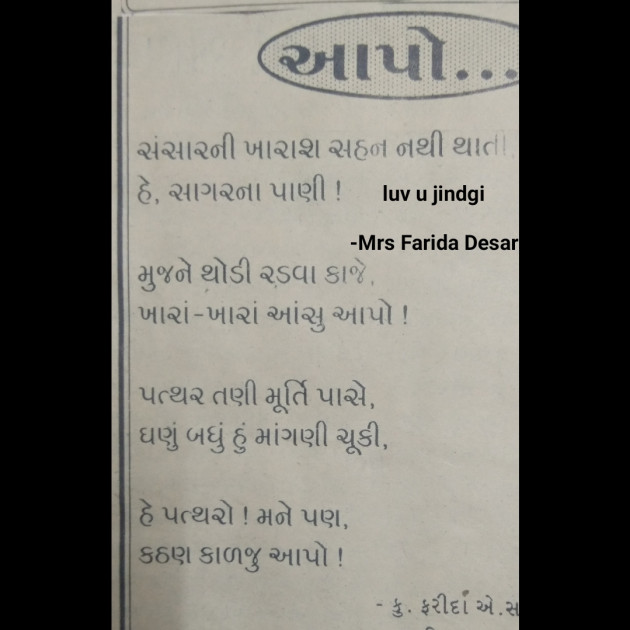 આપો...
સંસારની ખારાશ સહન નથી થાતી,
હે, સાગરના પાણી !
luv u jindgi
-Mrs Farida Desar
મુજને થોડી રડવા કાજે,
ખારાં-ખારાં આંસુ આપો !
પત્થર તણી મૂર્તિ પાસે,
ઘણું બધું હું માંગણી ચૂકી,
હે પત્થરો ! મને પણ,
કઠણ કાળજુ આપો !
- કુ. ફરીદા એ.સ